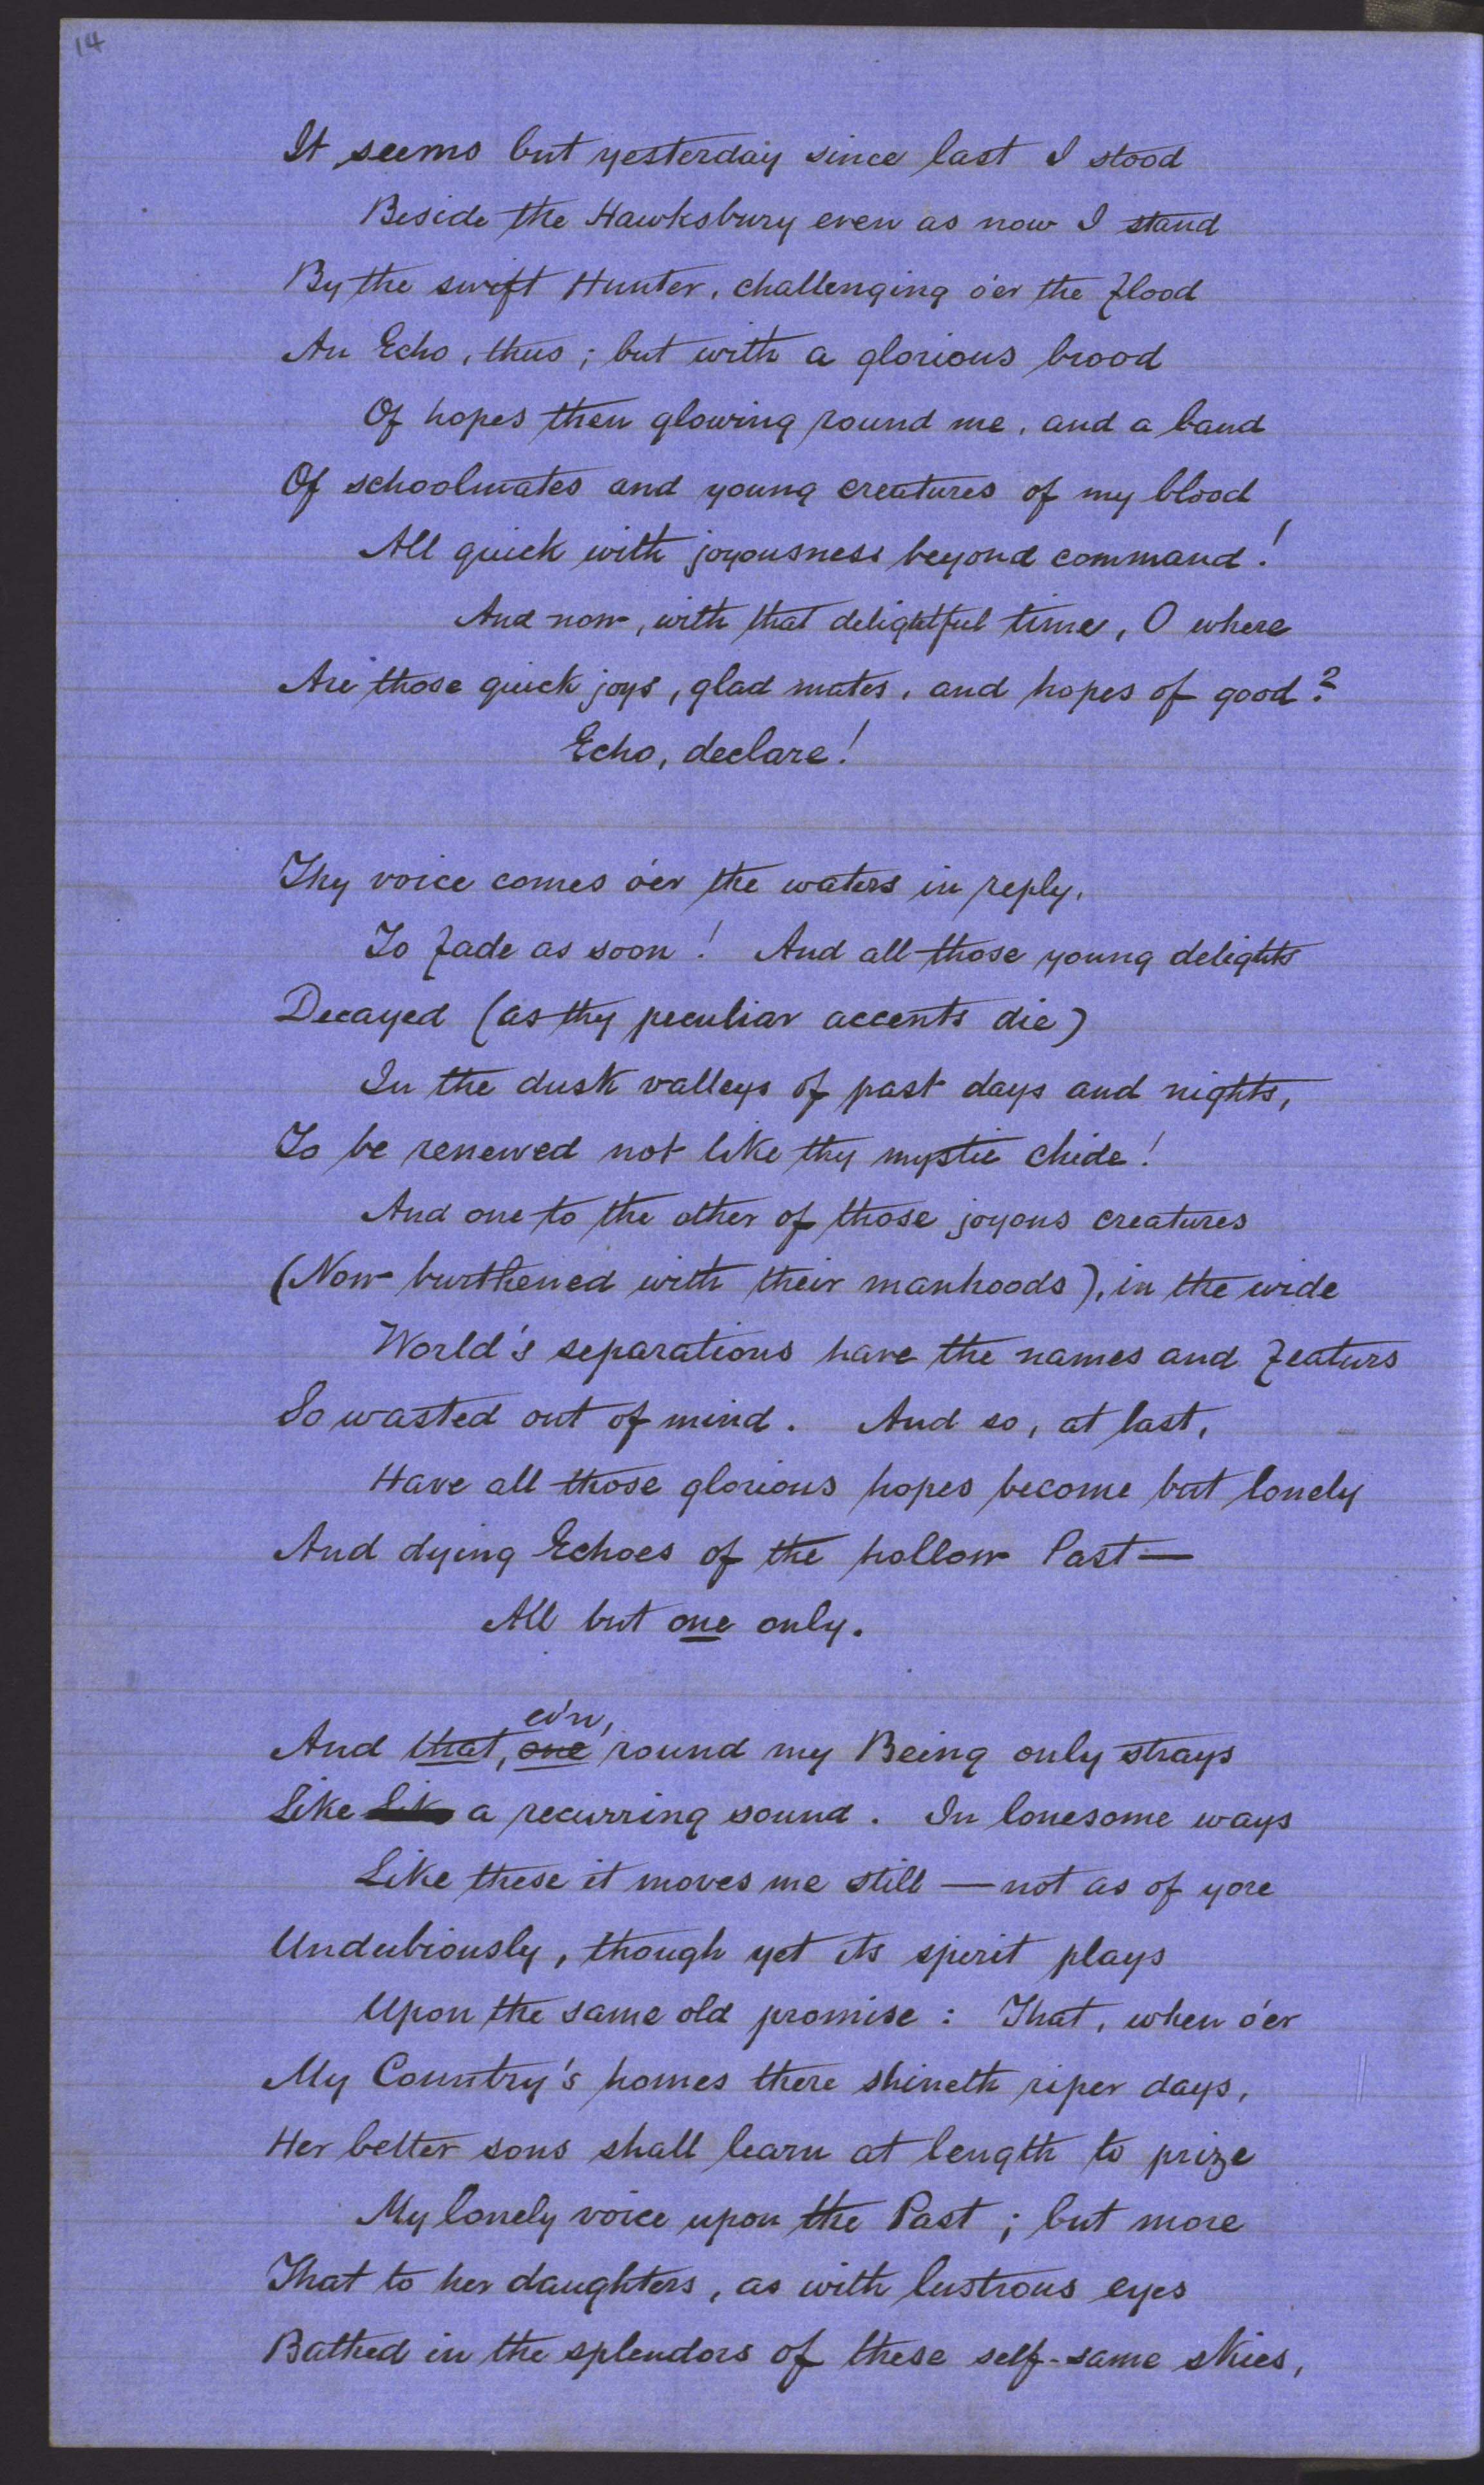 14
It seems but yesterday since last I stood
Beside the Hawksbury even as now I stand
By the swift Hunter, challenging o'er the flood
An Echo, thus; but with a glorious brood
Of hopes then glowing round me, and a band
Of schoolmates and young creatures of my blood
All quick with joyousness beyond command!
And now, with that delightful time, O where
Are those quick joys, glad mates, and hopes of good?
Echo, declare!
Thy voice comes o'er the waters in reply,
To fade as soon! And all those young delights
Decayed (as thy peculiar accents die)
In the dusk valleys of past days and nights,
To be renewed not like thy mystic chide!
And one to the other of those joyous creatures
(Now burthened with their manhoods), in the wide
World's separations have the names and featurs
So wasted out of mind. And so, at last,
Have all those glorious hopes become but lonely
And dying Echoes of the hollow Past—
All but one only.
ev'n,
And that, one round my Being only strays
Like Lik a recurring sound. In lonesome ways
Like these it moves me still — not as of yore
Undubiously, though yet its spirit plays
Upon the same old promise: That, when o'er
My Country's homes there shineth riper days,
Her better sons shall learn at length to prize
My lonely voice upon the Past; but more
That to her daughters, as with lustrous eyes
Bathed in the splendors of these self-same skies,